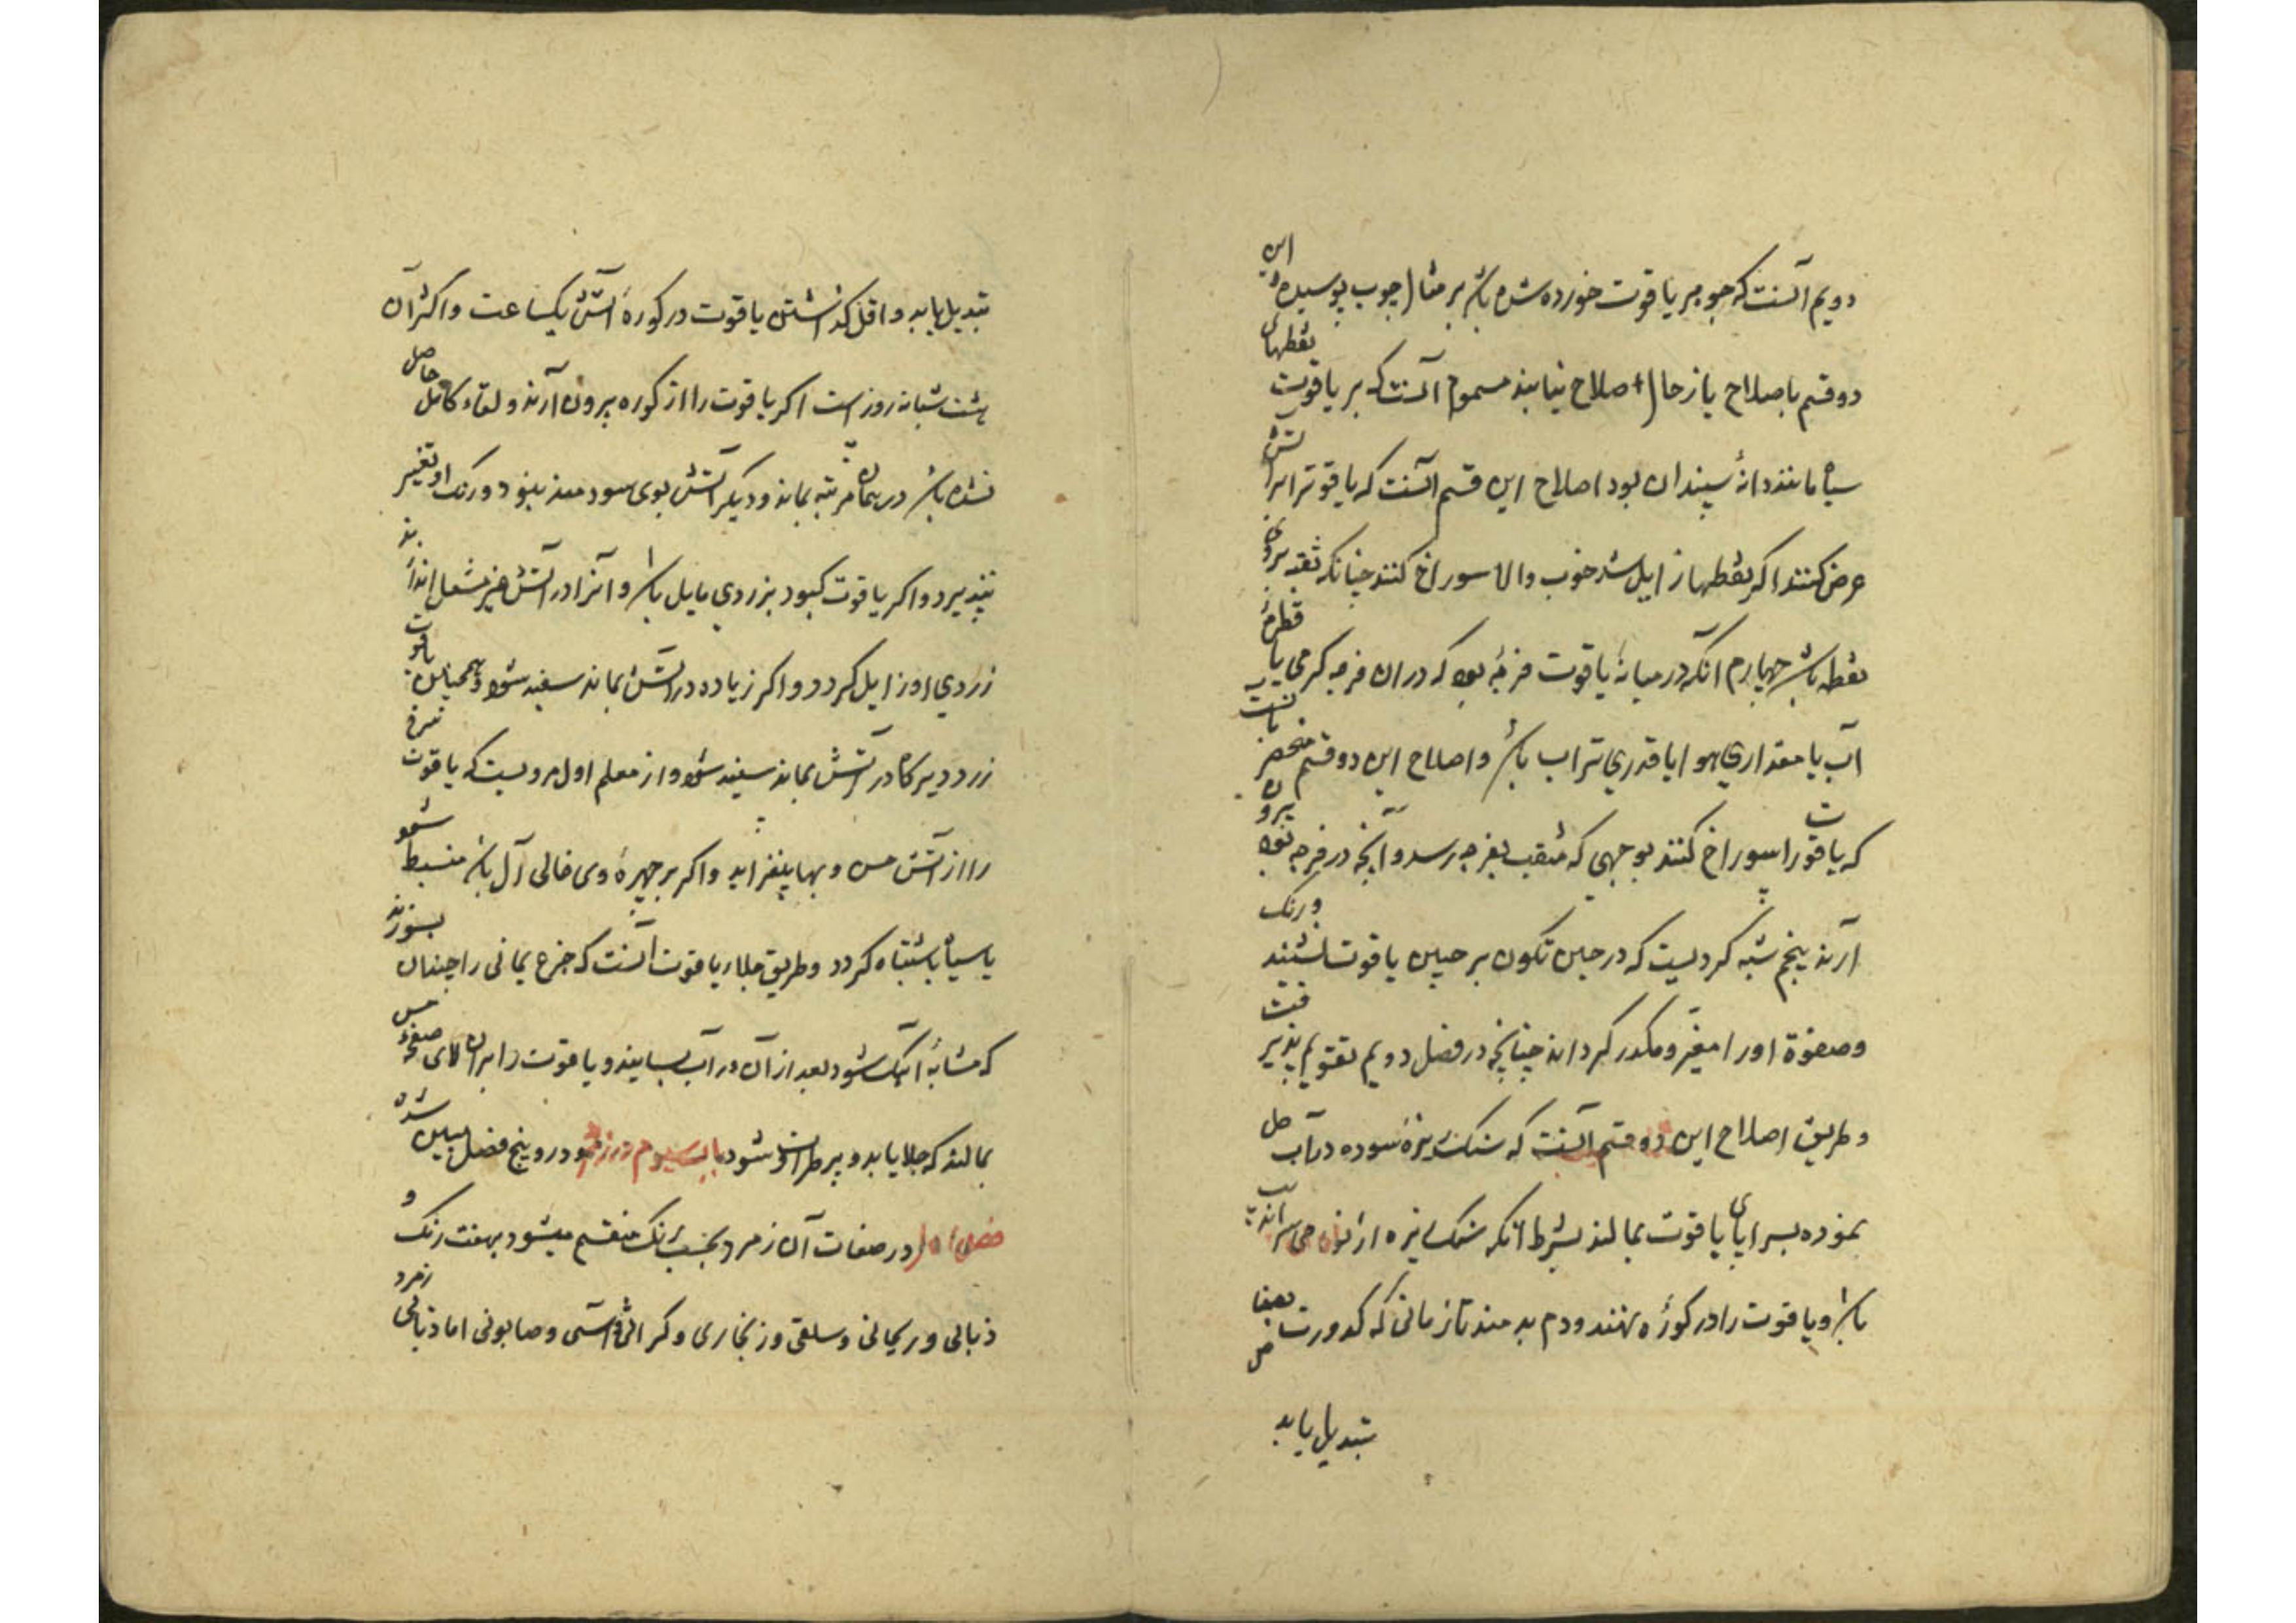 دویم آنست که جوهر یاقوت خورده شده باشد بر مثال چوب پوسیده و این
دو قسم باصلاح یا زحال اصلاح نیابند سیوم آنست که بر یاقوت نقطهای
سیاه مانند دانهٔ سپندان بود اصلاح این قسم آنست که یاقوت را بر آتش
عرض کنند اگر نقطها زایل شد خوب والا سوراخ کنند چنانکه ثقبه بروی
نقطه باشد چهارم آنکه در میانهٔ یاقوت فرجهٔ بود که در آن فرجه کرمی یا قطرهٔ
آب یا مقداری هوا یا قدری تراب باشد و اصلاح این دو قسم منحصر بآنست
که یاقوت را سوراخ کنند بوجهی که مثقب بفرجه رسد و آنچه در فرجه بود بیرون
آرند پنجم شبه گردیست که در حین تکون بر جبین یاقوت نشیند و رنگ
و صفوة او را مغیر و مکدر گرداند چنانچه در فصل دویم تقویم پذیرفت
و طریق اصلاح این دو قسم آنست که سنگ ریزه سوده در آب حل
نموده بسراپای یاقوت بمالند بشرط آنکه سنگ ریزه از نواحی سراندیب
باشد و یاقوت را در کوره نهند و دم بدمند تا زمانی که کدورت بصفا
تبدیل یابد
تبدیل یابد و اقل گذاشتن یاقوت در کورهٔ آتش یکساعت و اکثر آن
هشت شبانه روز است اگر یاقوت را از کوره بیرون آرند و نقاء کامل حاصل
نشده باشد در همان مرتبه بماند و دیگر آتش بوی سودمند نبود و رنگ او تغییر
نپذیرد و اگر یاقوت کبود بزردی مایل باشد و آنرا در آتش غیر مشعل اندازند
زردی او زایل گردد و اگر زیاده در آتش بماند سفید شود و همچنین یاقوت
زرد دیرگاه در آتش بماند سفید شود و از معلم اول مرویست که یاقوت سرخ
را از آتش حسن و بها بیفزاید و اگر بر چهرهٔ وی خالی آل باشد منبسط شود
یا سیاه باشد تباه گردد و طریق جلاء یاقوت آنست که جزع یمانی را چندان بسوزند
که مشابهٔ آهک شود بعد از آن در آب بسایند و یاقوت را بر آن بالای صفحهٔ مس
بمالند که جلا یابد و پر طراوت شود باب سیوم در زمرد و درو پنج فصل مبین شده
فصل اول در صفات آن زمرد بحسب رنگ منقسم میشود بهفت رنگ و
ذبابی و ریحانی و سلقی و زنجاری و کراثی و آسی و صابونی اما ذبابی زمرد